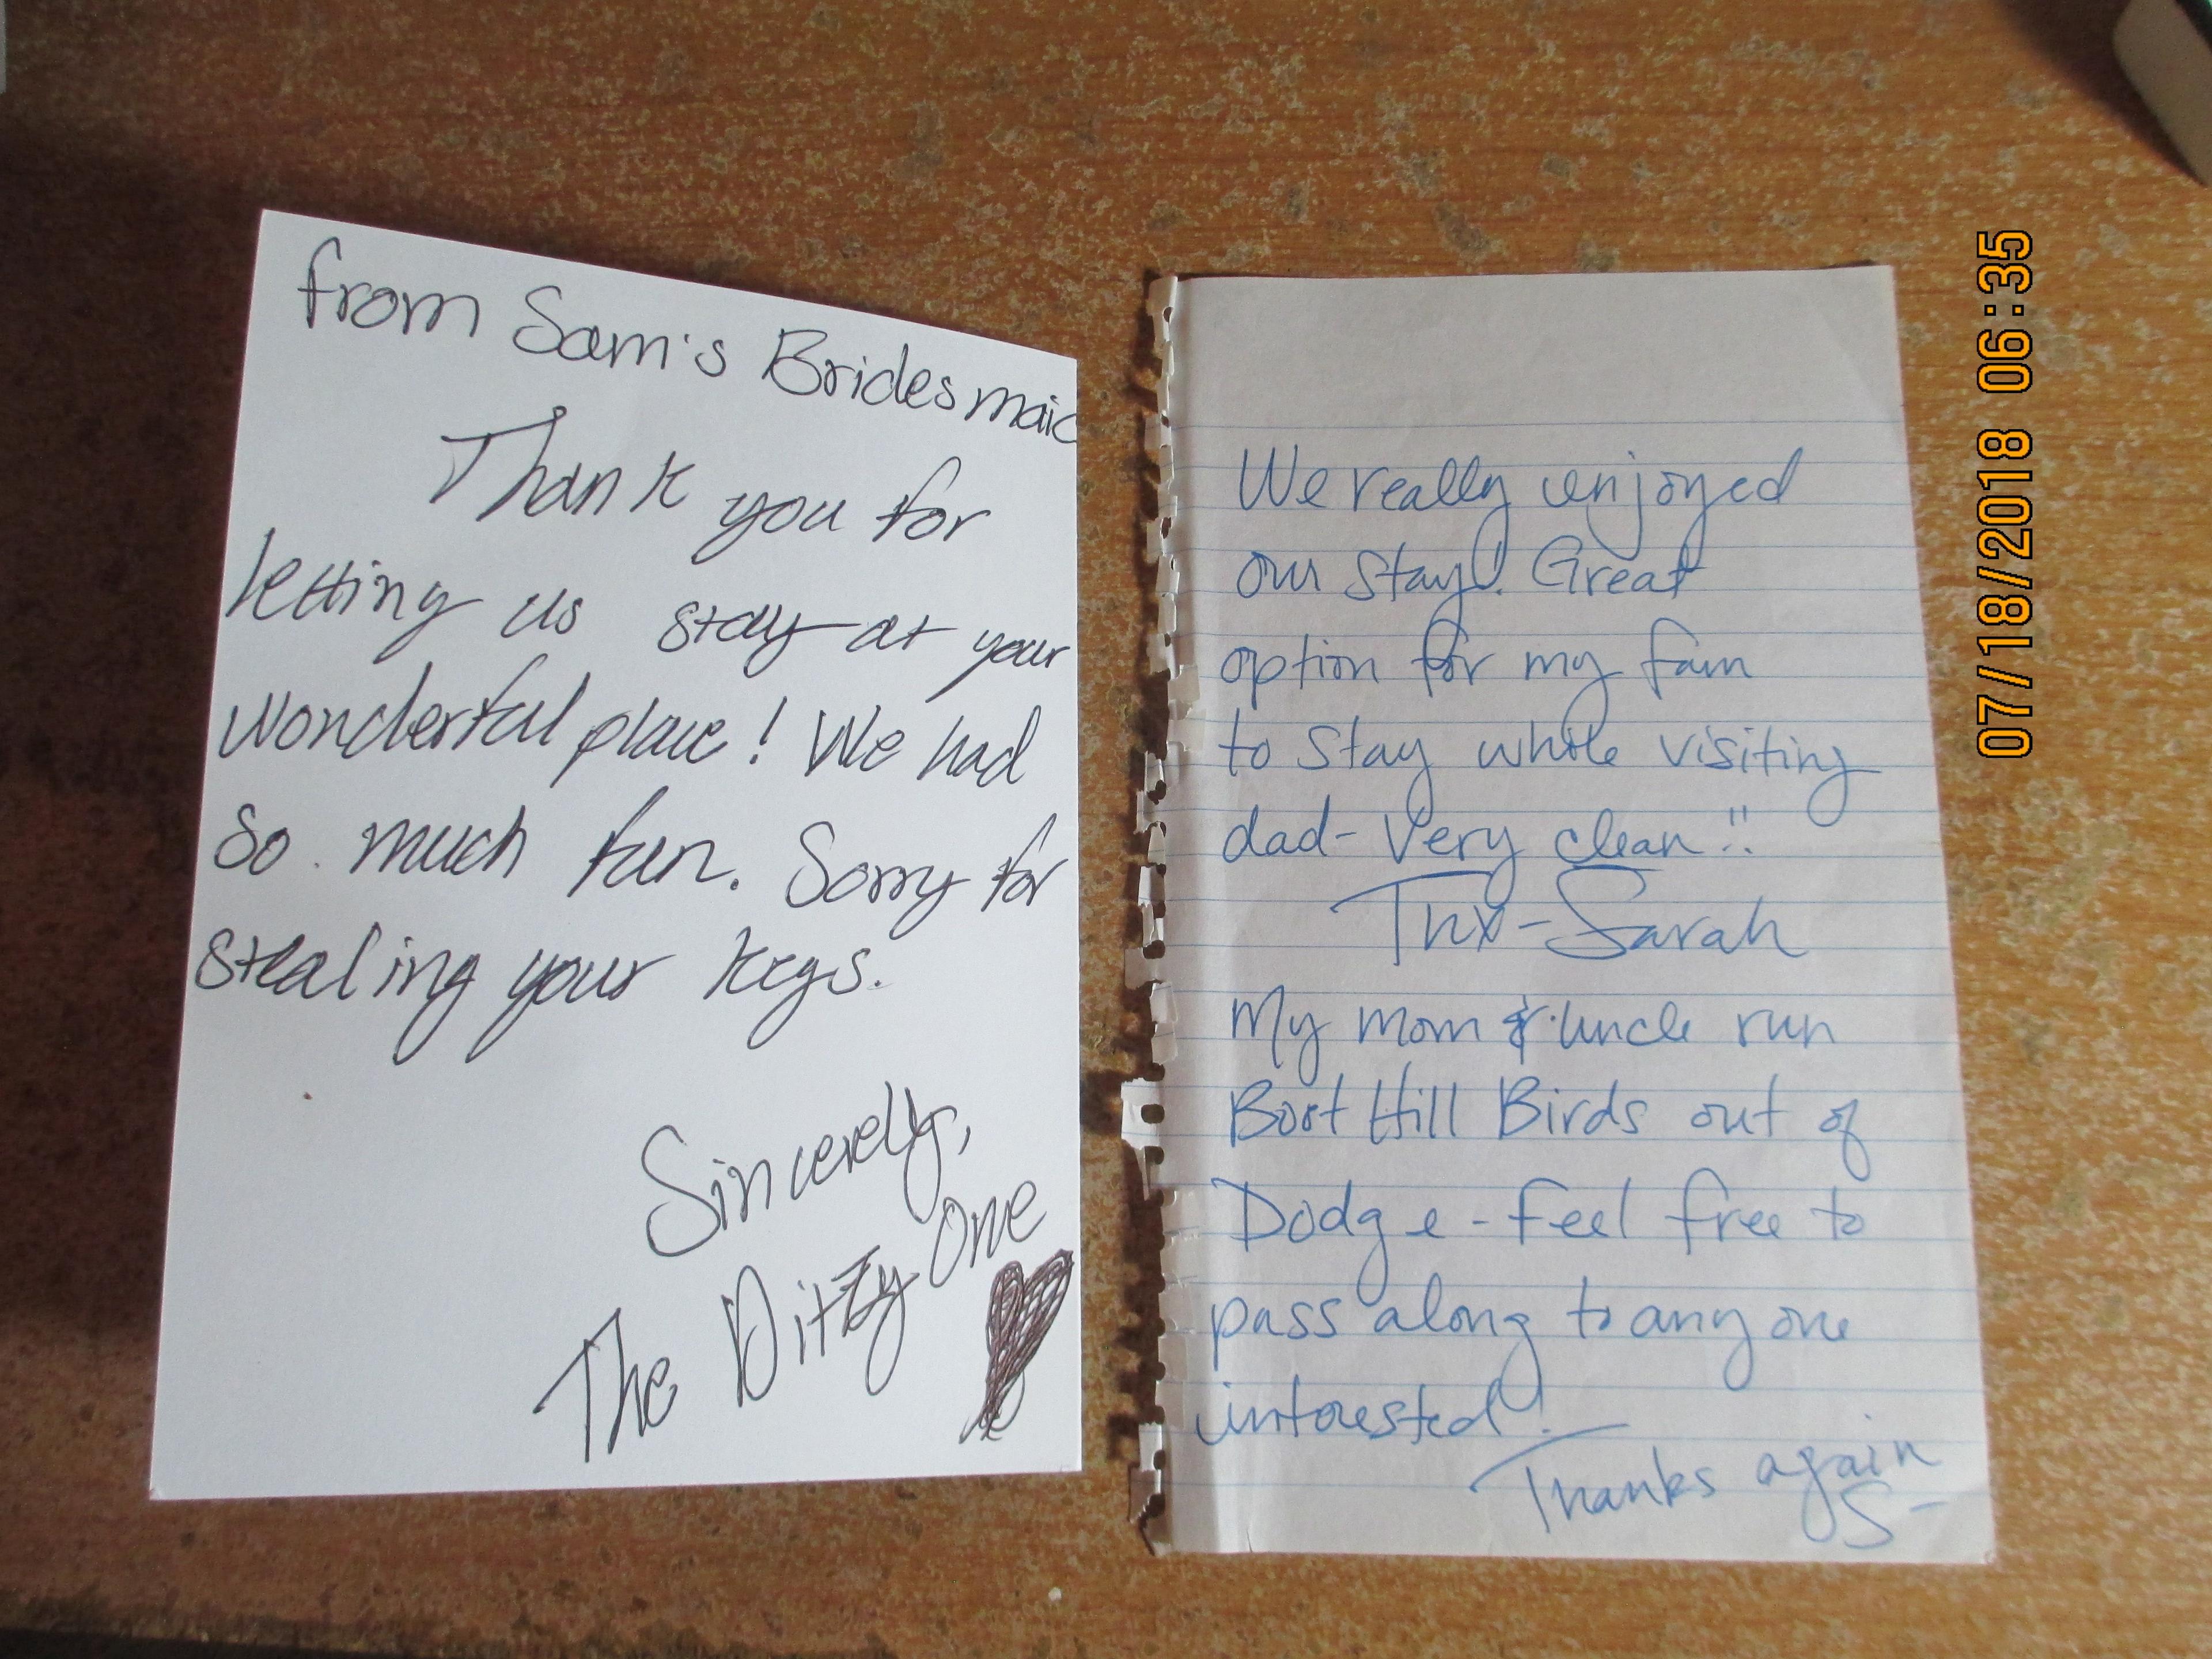 from Sam's Bridesmaid
Thank you for
letting us stay at your
wonderful place! We had
so much fun. Sorry for
stealing your keys.
Sincerely,
The Ditzy One
We really enjoyed
our stay! Great
option for my fam
to stay while visiting
dad- Very clean!!
Thx-Sarah
My mom & uncle run
Boot Hill Birds out of
Dodge - Feel free to
pass along to anyone
interested!
Thanks again
S-
07/18/2018 06:35